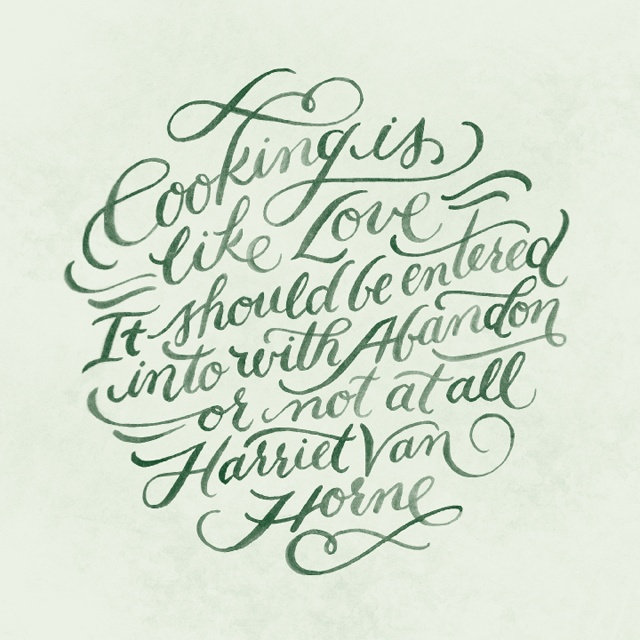 Cooking is
like Love
It should be entered
into with Abandon
or not at all
Harriet Van
Horne